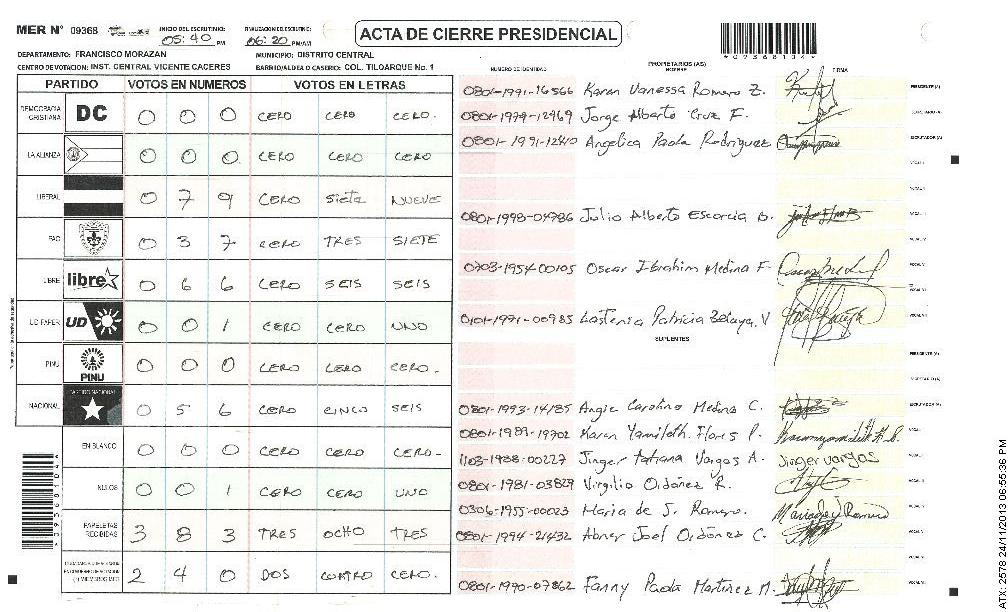 MER N° 09368 INICIO DEL ESCRUTINIO: 05:40 PM FINALIZACION DEL ESCRUTINIO: 06:20 PM/AM ACTA DE CIERRE PRESIDENCIAL
*09368104*
DEPARTAMENTO: FRANCISCO MORAZAN MUNICIPIO: DISTRITO CENTRAL
CENTRO DE VOTACION: INST. CENTRAL VICENTE CACERES BARRIO/ALDEA O CASERIO: COL. TILOARQUE No. 1
PARTIDO VOTOS EN NUMEROS VOTOS EN LETRAS
DEMOCRACIA CRISTIANA DC 0 0 0 CERO CERO CERO.
LA ALIANZA 0 0 0 CERO CERO CERO
LIBERAL 0 7 9 CERO Siete NUEVE
PAC 0 3 7 CERO TRES SIETE
LIBRE libre 0 6 6 CERO SEIS SEIS
UD FAPER UD 0 0 1 CERO CERO UNO
PINU PINU 0 0 0 CERO CERO CERO.
NACIONAL PARTIDO NACIONAL 0 5 6 CERO CINCO SEIS
EN BLANCO 0 0 0 CERO CERO CERO-
NULOS 0 0 1 CERO CERO UNO
PAPELETAS RECIBIDAS 3 8 3 TRES OCHO TRES
2 4 0 DOS CUATRO CERO.
NUMERO DE IDENTIDAD PROPIETARIOS (AS) NOMBRE FIRMA
0801-1991-16566 Karen Vanessa Romero Z. PRESIDENTE (A)
0801-1979-12969 Jorge Alberto Cruz F. SECRETARIO (A)
0801-1991-12410 Angelica Paola Rodriguez ESCRUTADOR (A)
VOCAL I
VOCAL II
0801-1998-04986 Julio Alberto Escorcia B. VOCAL III
VOCAL IV
0703-1954-00105 Oscar Ibrahim Medina F. VOCAL V
VOCAL VI
0101-1991-00985 Lastenia Patricia Zelaya. V VOCAL VII
SUPLENTES
PRESIDENTE (A)
SECRETARIO (A)
0801-1993-14185 Angie Carolina Medina C. ESCRUTADOR (A)
0801-1989-19702 Karen Yamileth Flores P. VOCAL I
1103-1988-00227 Jinger Tatiana Vargas A. Jinger Vargas VOCAL II
0801-1981-03829 Virgilio Ordóñez R. VOCAL III
0306-1955-00023 Maria de J. Romero. Maria de J Romero VOCAL IV
0801-1994-21432 Abner Joel Ordóñez C. VOCAL V
VOCAL VI
0801-1990-07862 Fanny Paola Martinez M. VOCAL VII
ATX-2578 24/11/2013 06:55:36 PM